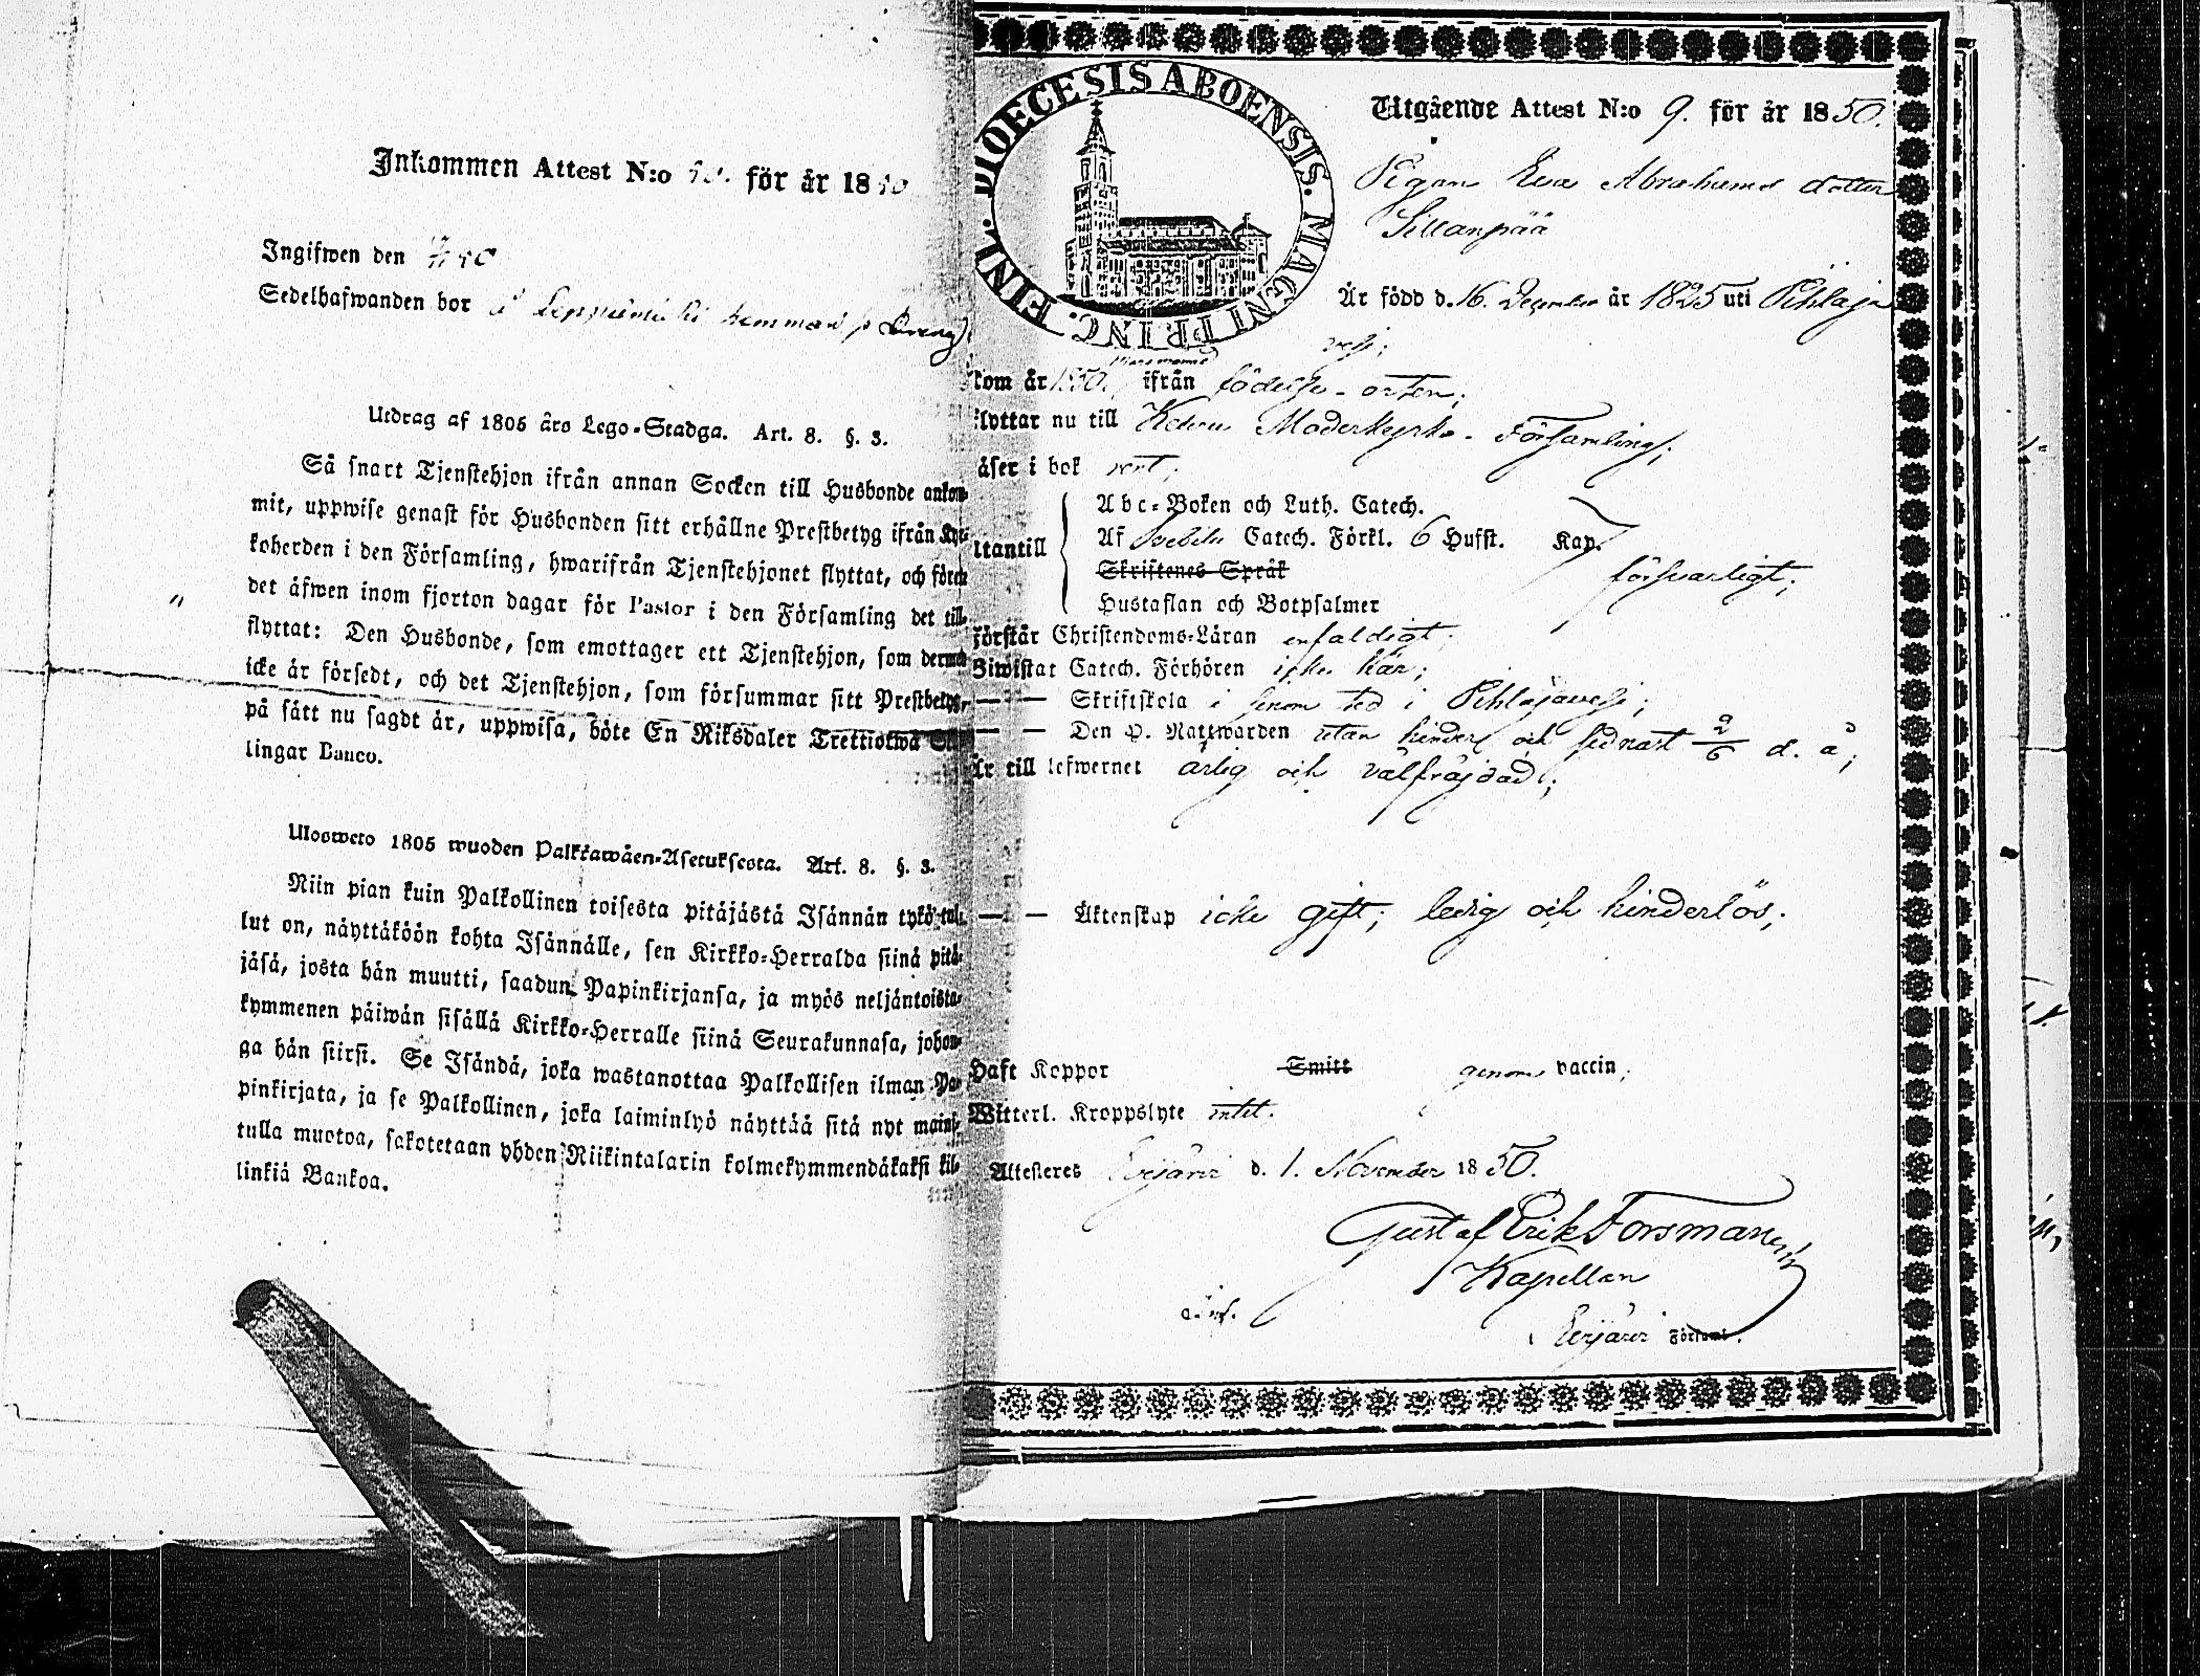 Inkommen Attest N:o för år 18
Ingifwen den
Sedelhafwanden bor å hemman
Utdrag af 1805 års Lego-Stadga. Art. 8. §. 3.
Så snart Tjenstehjon ifrån annan Socken till Husbonde ankom-
mit, uppwise genast för Husbonden sitt erhållne Prestbetyg ifrån Kyr-
koherden i den Församling, hwarifrån Tjenstehjonet flyttat, och förete
det äfwen inom fjorton dagar för Pastor i den Församling det till-
flyttat: Den Husbonde, som emottager ett Tjenstehjon, som dermed
icke är försedt, och det Tjenstehjon, som försummar sitt Prestbetyg,
på sätt nu sagdt är, uppwisa, böte En Riksdaler Trettiotwå Skil-
lingar Banco.
Ulosweto 1805 wuoden Palkkawäen-Asetuksesta. Art. 8. §. 3.
Niin pian kuin Palkollinen toisesta pitäjästä Isännän tykö tul-
lut on, näyttäköön kohta Isännälle, sen Kirkko-Herralda siinä pitä-
jäsä, josta hän muutti, saadun Papinkirjansa, ja myös neljäntoista-
kymmenen päiwän sisällä Kirkko-Herralle siinä Seurakunnasa, johon-
ga hän siirsi. Se Isändä, joka wastanottaa Palkollisen ilman Pa-
pinkirjata, ja se Palkollinen, joka laiminlyö näyttää sitä nyt maini-
tulla muotoa, sakotetaan yhden Riikintalarin kolmekymmendäkaksi kil-
linkiä Bankoa.
DIOECESIS ABOENSIS. MAGNI PRINC. FINL.
Utgående Attest N:o 9. för år 1850.
Pigan Eva Abrahams dotter
Sillanpää
Är född d. 16. December år 1825 uti Pihlaja
vesi;
kom år 1850. ifrån födelse-orten;
flyttar nu till Keuru Moderkyrko-Församling;
läser i bok rent;
Abc-Boken och Luth. Catech.
utantill Af Svebilii Catech. Förkl. 6 Hufst. Kap.
Skriftenes Språk försvarligt;
Hustaflan och Botpsalmer
Förstår Christendoms-Läran enfaldigt;
Biwistat Catech. Förhören icke här;
— — Skriftskola i sinom tid i Pihlajavesi;
— — Den H. Nattwarden utan hinder och sednast 2/6 d. å;
Är till lefwernet ärlig och välfräjdad;
— — Äktenskap icke gift; ledig och hinderlös;
Haft Koppor Smitt genom vaccin;
Witterl. Kroppslyte intet.
Attesteras Evijärvi d. 1. November 1850.
Gustaf Erik Forsman
Kapellan
Evijärvi Församl.